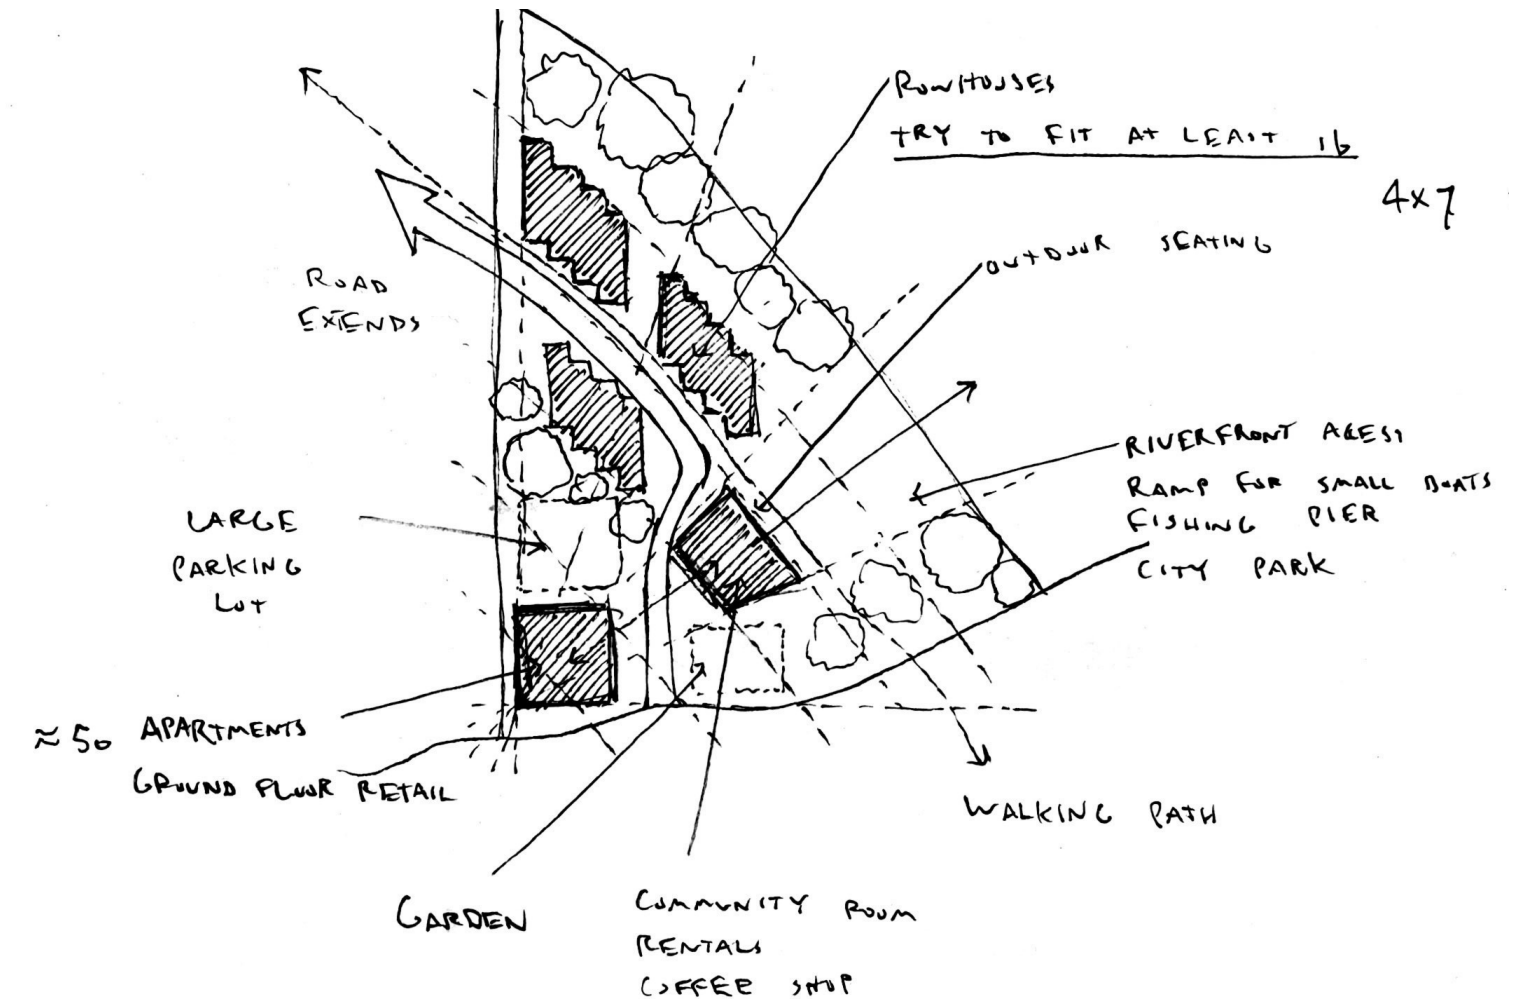 ROWHOUSES
TRY TO FIT AT LEAST 16
4x7
OUTDOOR SEATING
ROAD
EXTENDS
RIVERFRONT ACESS
RAMP FOR SMALL BOATS
FISHING PIER
CITY PARK
LARGE
PARKING
LOT
≈ 50 APARTMENTS
GROUND FLOOR RETAIL
WALKING PATH
GARDEN
COMMUNITY ROOM
RENTALS
COFFEE SHOP